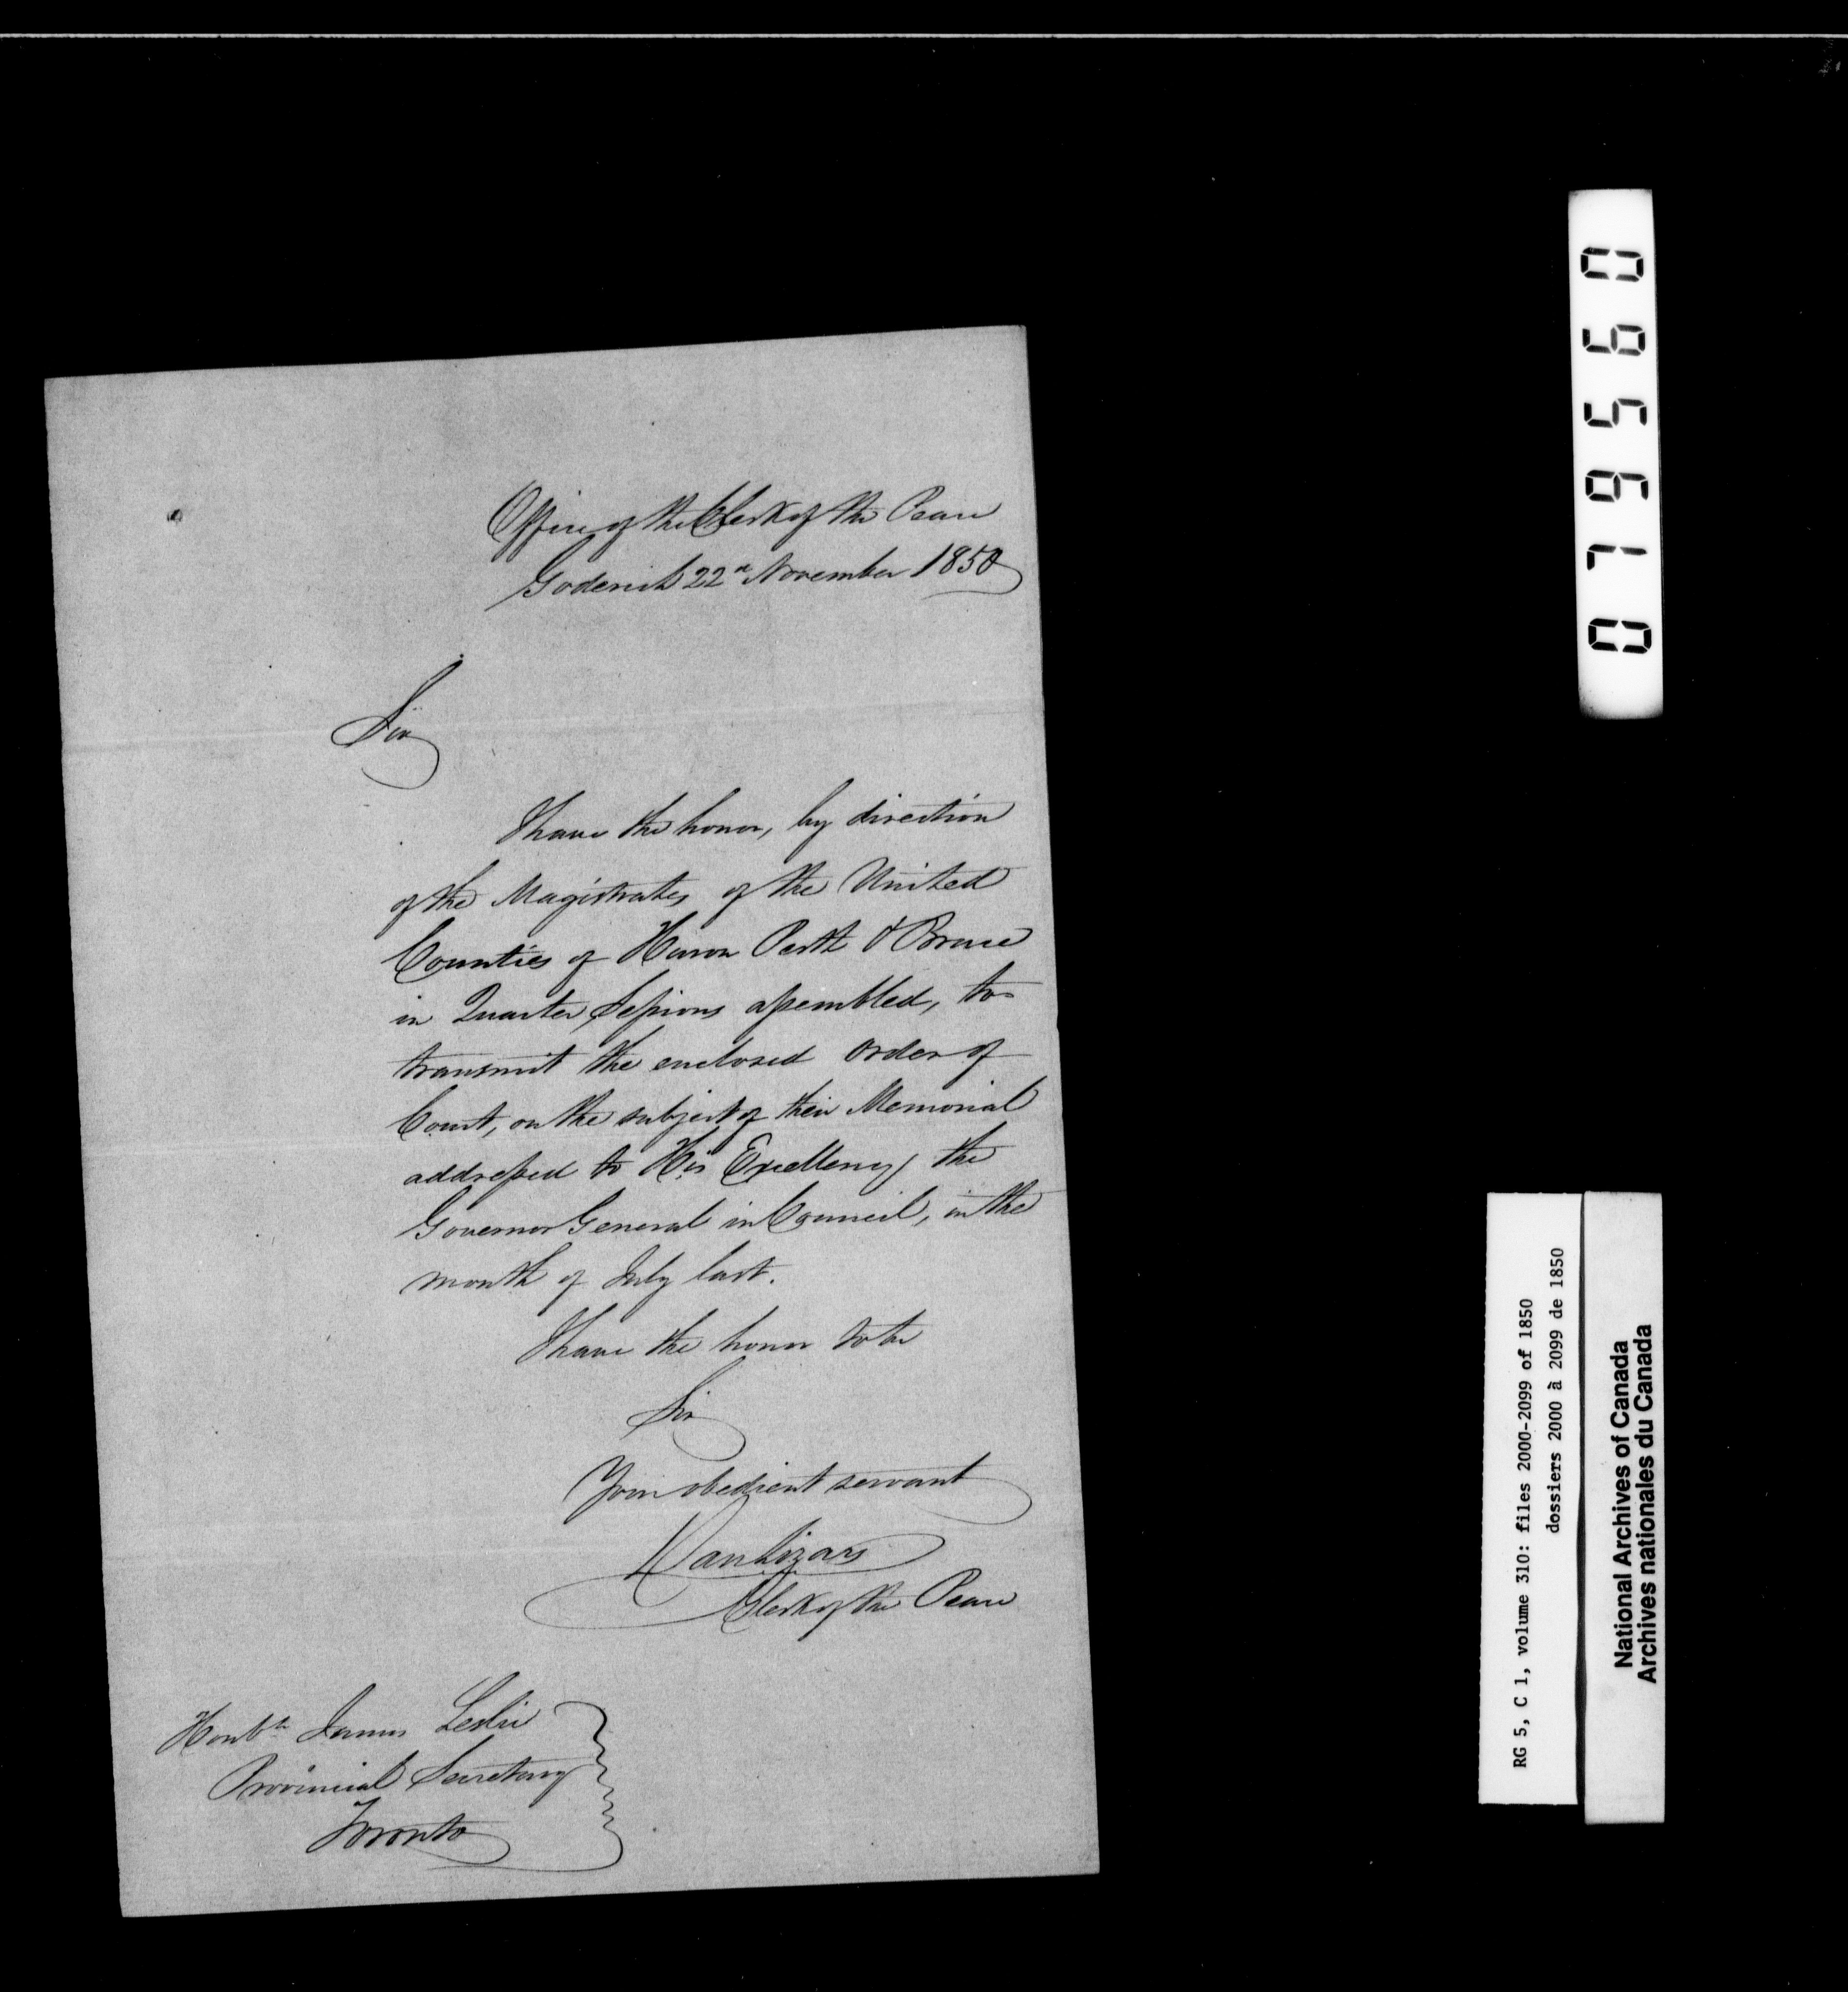 Office of the Clerk of the Peace
Goderich 22d November 1850
Sir
I have the honor, by direction
of the Magistrates of the United
Counties of Huron Perth & Bruce
in Quarter Sessions assembled, to
transmit the enclosed order of
Court, on the subject of their Memorial
addressed to His Excellency the
Governor General in Council, in the
month of July last.
I have the honor to be
Sir
Your obedient servant
Dan Lizars
Clerk of the Peace
Honble James Leslie
Provincial Secretary
Toronto
079560
RG 5, C 1, volume 310: files 2000-2099 of 1850
dossiers 2000 à 2099 de 1850
National Archives of Canada
Archives nationales du Canada